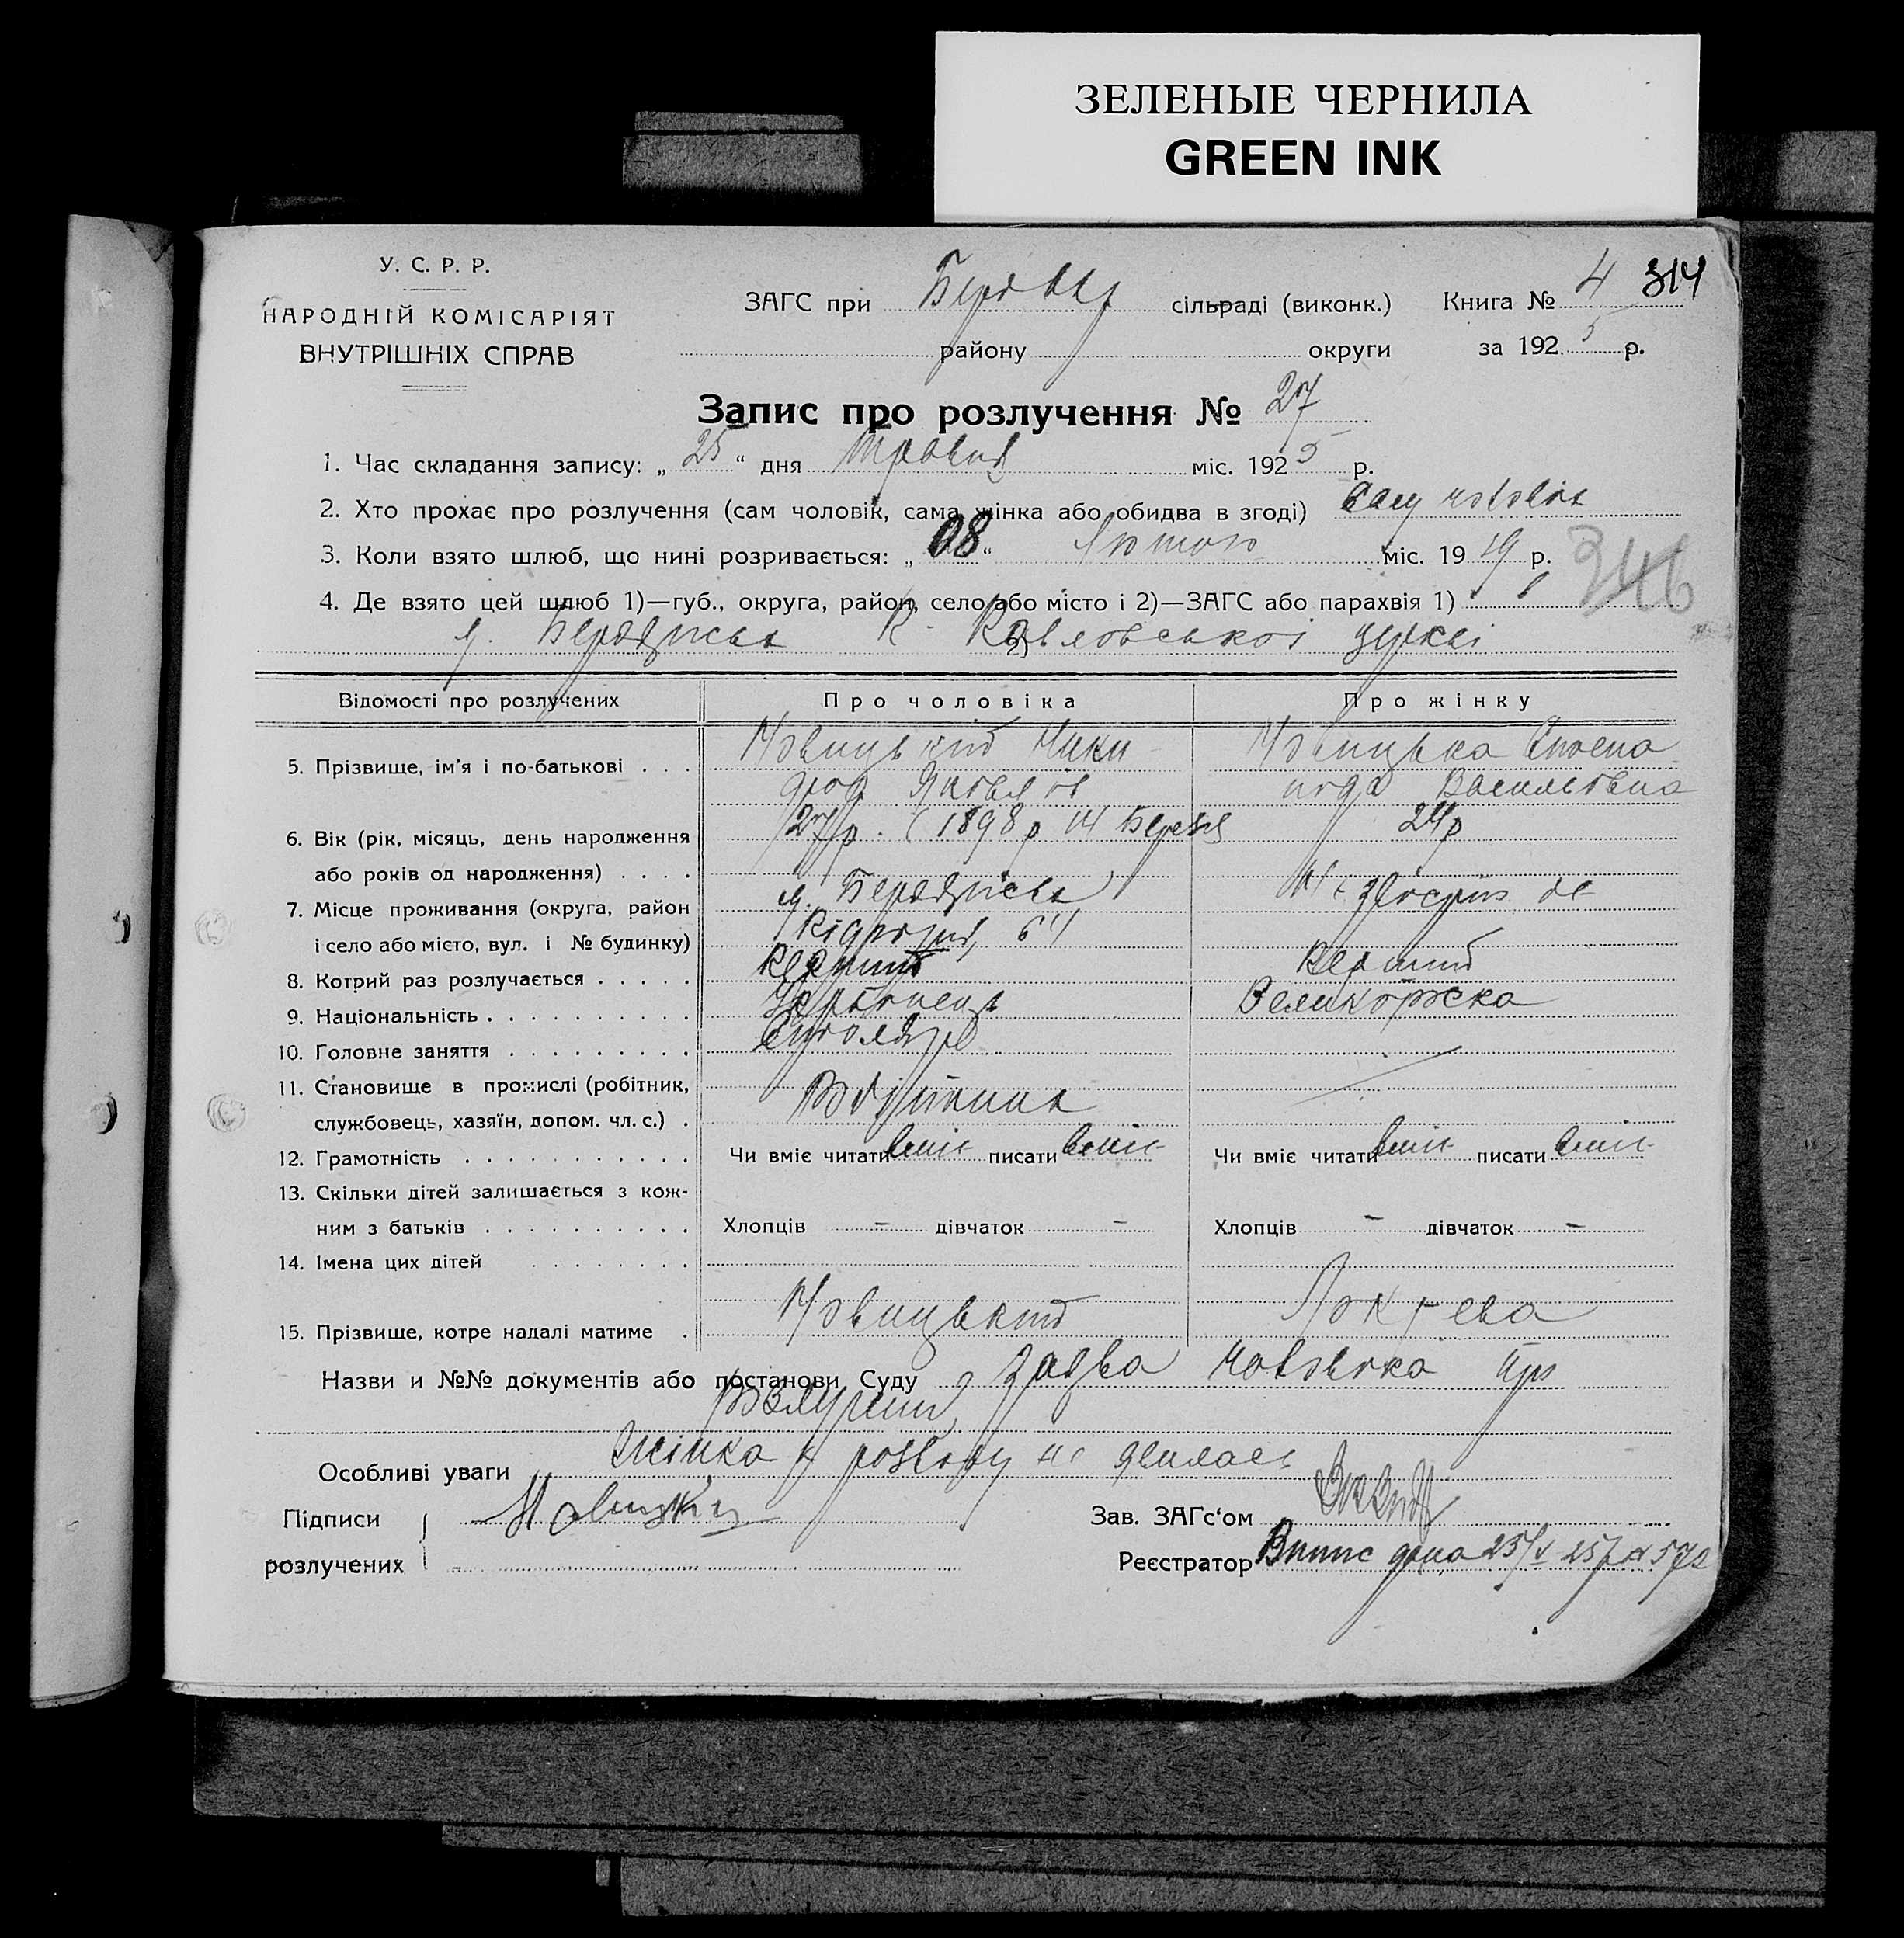 ЗЕЛЕНЫЕ ЧЕРНИЛА
GREEN INK
У. С. Р. Р.
НАРОДНІЙ КОМІСАРІЯТ
ВНУТРІШНІХ СПРАВ
ЗАГС при сільраді (виконк.) Книга № 4 314
району округи за 1925 р.
Запис про розлучення № 27
1. Час складання запису: „25“ дня Травня міс. 1925 р.
2. Хто прохає про розлучення (сам чоловік, сама жінка або обидва в згоді) Сам чоловік
3. Коли взято шлюб, що нині розривається: „08“ Лютого міс. 1919 р.
346
4. Де взято цей шлюб 1)—губ., округа, район, село або місто і 2)—ЗАГС або парахвія 1)
2) церкві
Відомості про розлучених Про чоловіка Про жінку
5. Прізвище, ім'я і по-батькові . . . Новицький Ники- Новицька Степа-
фор Яковлів нида Васильовна
6. Вік (рік, місяць, день народження 27 р. (1898 р 14 Березня 24 р
або років од народження) . . . .
7. Місце проживання (округа, район м. Бердянськ
і село або місто, вул. і № будинку) 64
8. Котрий раз розлучається . . . . . Перший Перший
9. Національність . . . . . . . . . . Українець Великоруска
10. Головне заняття . . . . . . . . .
11. Становище в промислі (робітник,
службовець, хазяїн, допом. чл. с.) . Робітник
12. Грамотність . . . . . . . . . . . Чи вміє читати вміє писати вміє Чи вміє читати вміє писати вміє
13. Скільки дітей залишається з кож-
ним з батьків . . . . . . . . . . Хлопців – дівчаток – Хлопців – дівчаток –
14. Імена цих дітей . . . . . . . .
15. Прізвище, котре надалі матиме . Новицький
Назви и №№ документів або постанови Суду Заява чоловіка про
розлучення
Особливі уваги Жінка у розводу не явилась
Підписи Новицкий Зав. ЗАГс‘ом
розлучених Реєстратор Випис дана 25/V 25 р